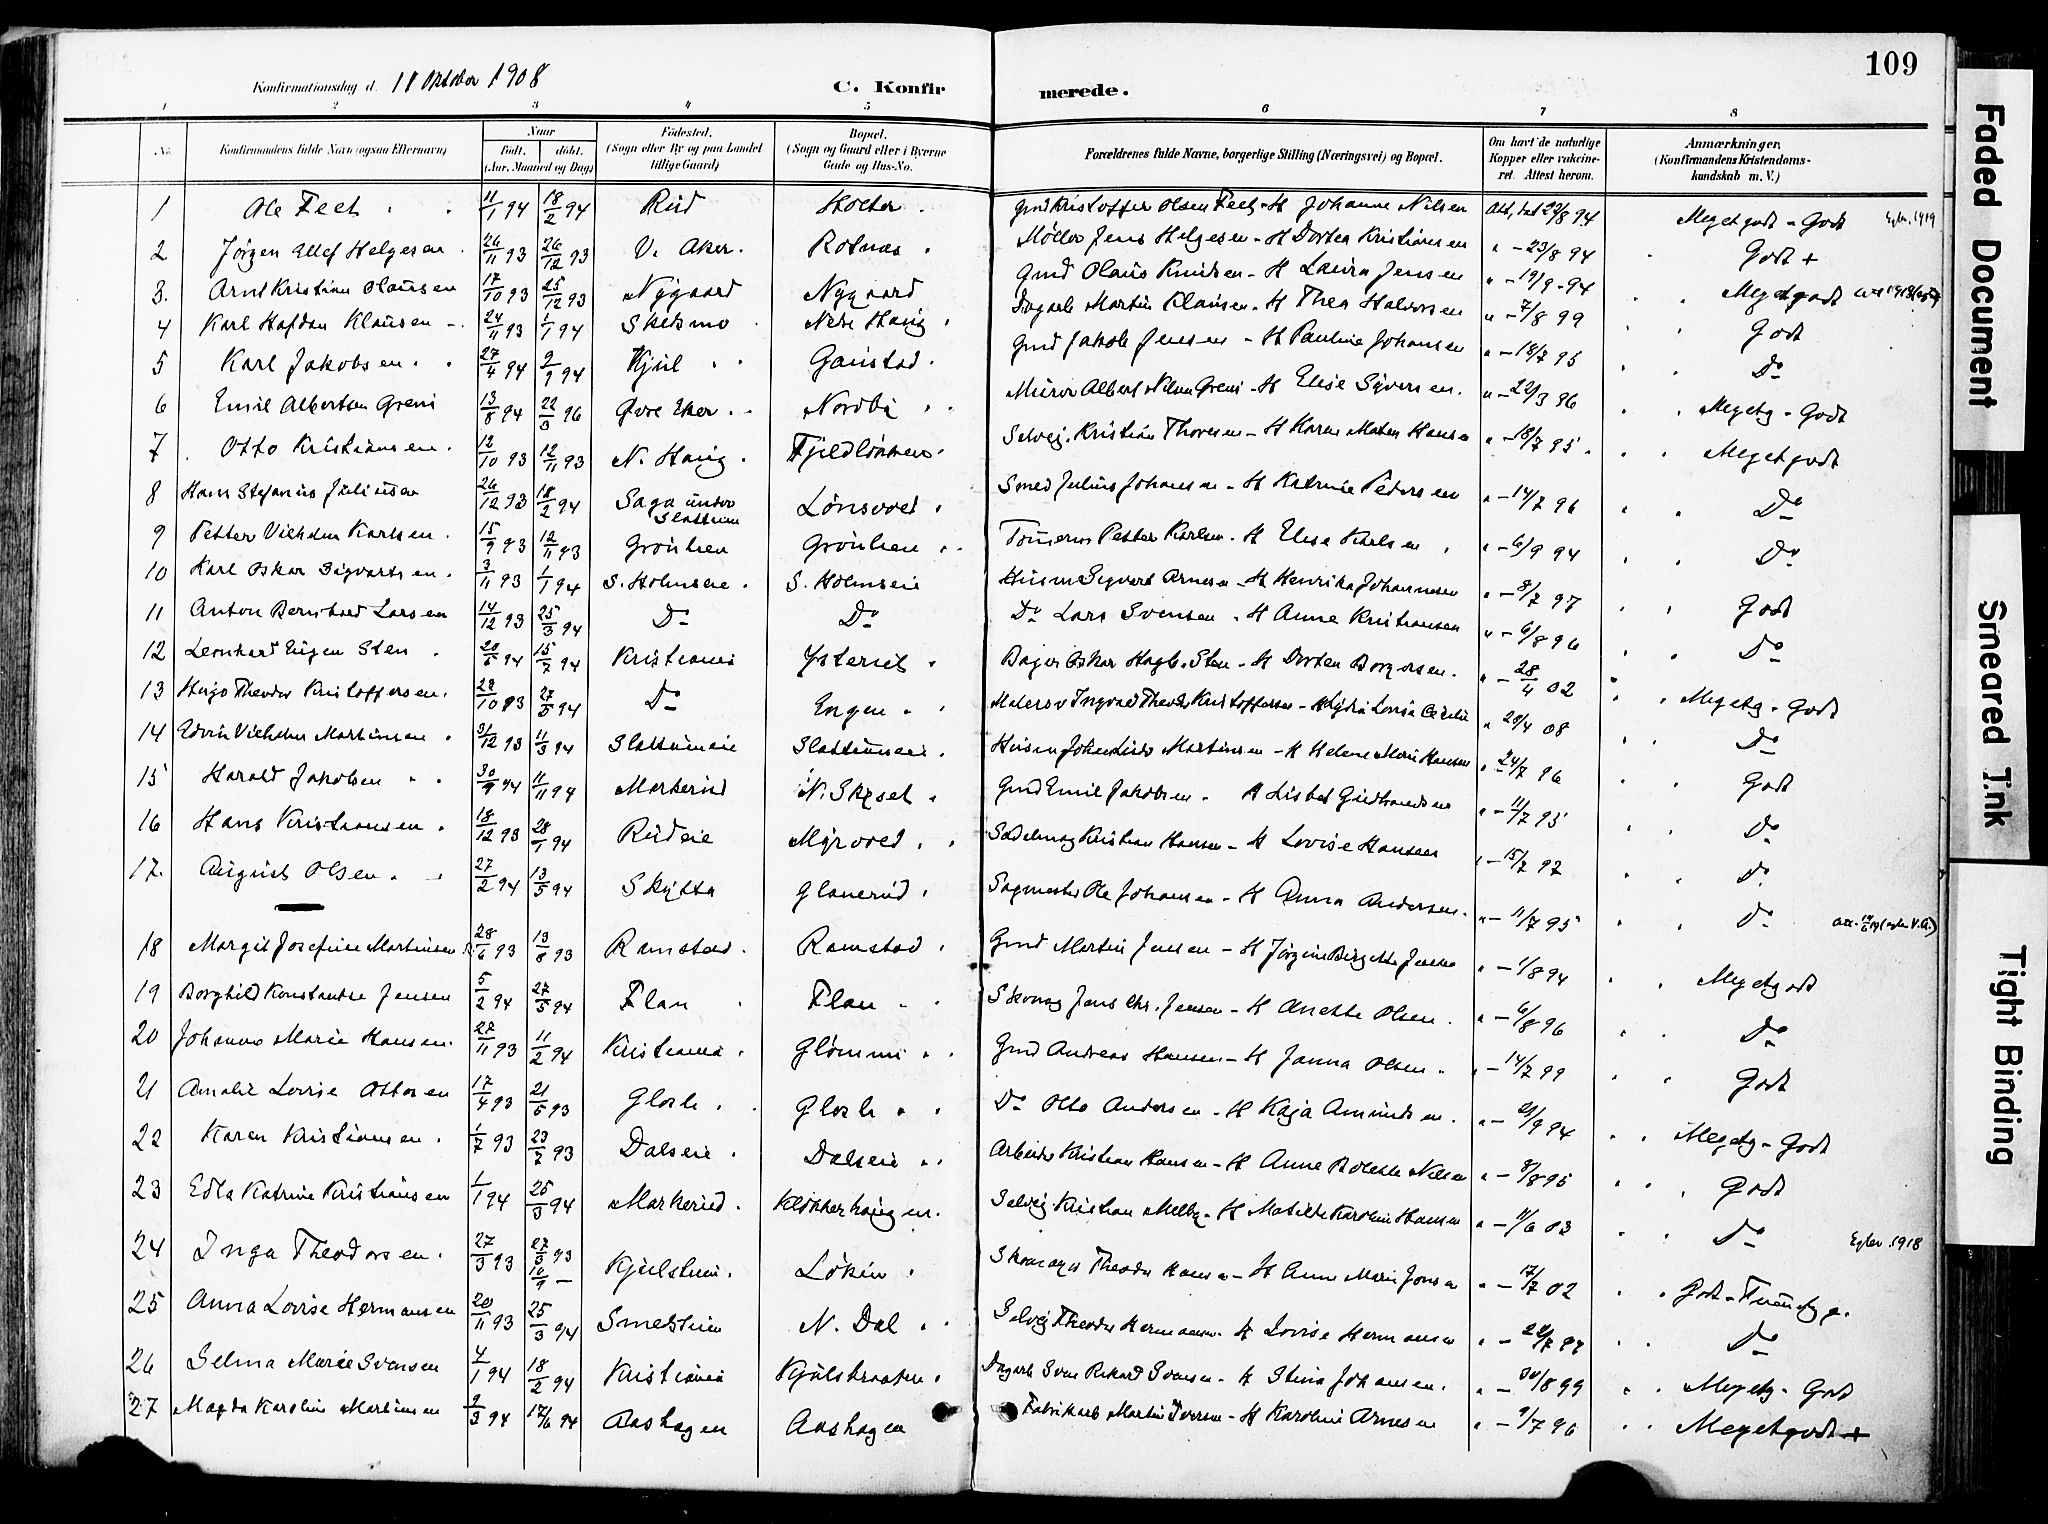 109
Konfirmationsdag d. 11 Oktober 1908
C. Konfir merede.
1 2 3 4 5 6 7 8
No. | Konfirmandens fulde Navn (ogsaa Efternavn) | Naar født. døbt. (Aar, Maaned og Dag) | Fødested. (Sogn eller By og paa Landet tillige Gaard) | Bopæl. (Sogn og Gaard eller i Byerne Gade og Hus-No. | Forældrenes fulde Navne, borgerlige Stilling (Næringsvei) og Bopæl. | Om havt de naturlige Kopper eller vakcineret. Attest herom. | Anmærkninger. (Konfirmandens Kristendomskundskab m. V.)
1 Ole Fect 11/1 94 18/2 94 Rud Holter Gmd Kristoffer Olsen Fect - H Johanne Nilsen Att. dat 22/8 94 Megetgodt - Godt Egter. 1919
2 Jörgen Ellef Helgesen 26/11 93 26/12 93 V. Aker. Rotnæs Möller Jens Helgesen - H Dortea Kristiansen " - 23/8 94 Godt +
3. Arnt Kristian Olaüsen 17/10 93 25/12 93 Nygaard Nygaard Gmd Olaüs Knüdsen - H Laura Jensen " - 19/9 - 94 Megetgodt
4 Karl Hafdan Klaüsen 24/11 93 1/1 94 Skedsmo Nedre Haüg Dagarb Martin Klaüsen - H Thea Halvorsen " - 7/8 99 Godt
5 Karl Jakobsen 27/4 94 9/9 94 Kjül Gaüstad Gmd Jakob Jensen - H Pauline Johansen " - 18/7 95 Do
6 Emil Alberton Greni 13/8 94 22/3 96 Øvre Eker Nordbÿ Mürer Albert Nilsen Greni - H Elise Sÿversen. " - 22/3 96 Megetg - Godt
7 Otto Kristiansen 12/10 93 12/11 93 N. Haüg Fjeldlökken Selvej. Kristian Thoresen - H Karen Maten Hansen " - 18/7 95 Megetgodt
8 Hans Stefanüs Jüliüsen 26/12 93 18/2 94 Saga ünder Slattum Lönsvoet Smed Julius Johansen - H Katrine Pedersen " - 14/7 96 Do
9 Petter Vilhelm Karlsen 15/9 93 12/11 93 Grönlien Grönlien Petter Karlsen - H Elise Karlsen " - 6/9 94 Do
10 Karl Oskar Sigvartsen. 3/11 93 1/1 94 S. Holmseie. S. Holmseie Hüsm Sigvart Arnesen - H Henrika Johannesen " - 8/7 97
11 Anton Bernhard Larsen 14/12 93 25/3 94 Do Do Do Lars Svensen - H Anne Kristiansen " - 6/8 96 Godt
12 Leonhard Eügen Sten 20/5 94 15/7 94 Kristiania Ysteriet Bager Oskar Hagb. Sten - H Dorten Borgersen. " - 28/4 02 Do
13 Hugo Theodor Kristoffersen. 28/10 93 27/5 94 Do Engen Malersv Ingvald Theodor Kristoffersen - H Lydia Lovise Cecilie " 28/4 08 Megetg - Godt
14 Edvin Vilhelm Martinsen 31/12 93 11/3 94 Slattumeie Slattumeie Hüsm Johan Martinsen - H Helene Marie Hansen " 24/7 96 Do
15 Harald Jakobsen 30/9 94 11/11 94 Markerüd N. Skÿset Gmd Emil Jakobsen. H Lisbet Güdbrandsen " - 11/7 95 Godt
16 Hans Kristiansen 18/12 93 28/1 94 Rüdeie Mÿrvoel Sadelmag Kristian Hansen - H Lovise Hansen " - 15/7 97 Do
17. August Olsen 27/2 94 13/5 94 Skÿtta Glanerüd Sagmester Ole Johansen - H Anna Andersen. " - 11/7 95 Do
18 Margit Josefine Martinsen 28/6 93 13/8 93 Ramstad Ramstad Gmd Martin Jensen - H Jörgine Birgette Jensen " - 1/8 94 Megetgodt
19 Borghild Konstanse Jensen 5/2 94 27/5 94 Flan Flan Skomag Jens Chr. Jensen - H Anette Olsen. " - 6/8 96 Do
20 Johanne Marie Hansen. 27/11 93 11/2 94 Kristiania Glömmi Gmd Andreas Hansen - H Janna Olsen " - 14/7 99 Godt
21 Amalie Lovise Ottosen 17/4 93 21/5 93 Glosli Glosli Do Otto Andersen - H Kaja Amündsen. " - 9/9 94 Megetg - Godt
22 Karen Kristiansen 1/7 93 23/7 93 Dalseie Dalseie Arbeider Kristian Hansen - H Anne Bolette Nilsen " - 8/8 95 Godt
23 Edla Katrine Kristiansen 1/1 94 25/3 94 Markerüd Klokkerhaügen. Selvej Kristian Melby - H Matilde Karoline Hansen " - 11/6 03 Do
24 Inga Theodorsen. 27/3 93 27/3 93 10/9 - Kjülstüen. Løken Skomager Theodor Hansen - H Anne Marie Jonsen " - 17/7 02 Godt - Egter. 1918
25 Anna Lovise Hermansen 20/11 93 25/3 94 Smedstüen N. Dal Selvej Theodor Hermansen - H Lovise Hermansen " - Do
26 Selma Marie Svensen 4/1 94 18/2 94 Kristiania Kjülstraaten Dagarb Sven Rikard Svensen - H Stina Johansen. " - 30/8 99 Megetg - Godt
27 Magda Karoline Martinsen 9/3 94 17/6 94 Aashagen Aashagen Fabrikarb Martin Iversen - H Karoline Arnesen " - 9/7 96 Megetgodt +
Faded Document
Smeared Ink
Tight Binding